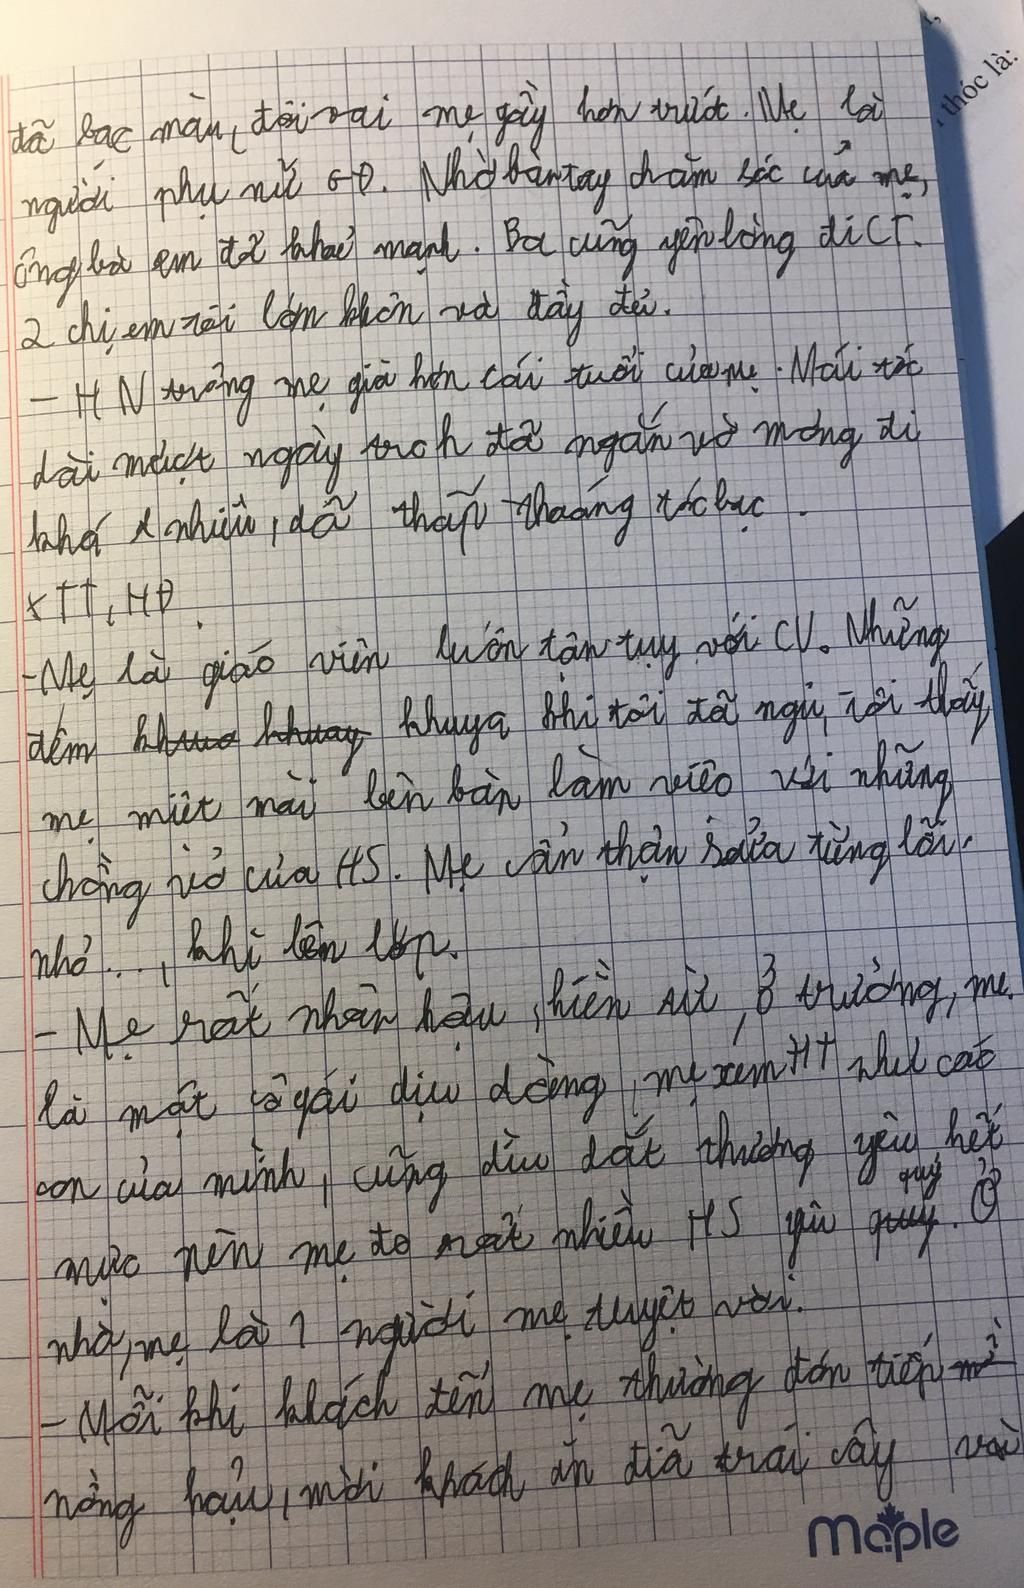 thóc là:
đã bạc màu, đôi vai mẹ gầy hơn trước. Mẹ là
người phụ nữ GĐ. Nhờ bàn tay chăm sóc của mẹ,
ông bà em đã khoẻ mạnh. Ba cũng yên lòng đi CT.
2 chị em tôi lớn khôn và đầy đủ.
- HN trông mẹ già hơn cái tuổi của mẹ. Mái tóc
dài mượt ngày trch đã ngắn và mỏng đi
khá nhiều, đã thấp thoáng tóc bạc.
x TT, HĐ.
- Mẹ là giáo viên luôn tận tụy với CV. Những
đêm khuya khi tôi đã ngủ, tôi thấy
mẹ miệt mài bên bàn làm việc với những
chồng vở của HS. Mẹ cẩn thận sửa từng lỗi
nhỏ..., khi lên lớp.
- Mẹ rất nhân hậu, hiền từ, ở trường, mẹ
là một cô gái dịu dàng, mẹ xem HT như các
con của mình, cũng dìu dắt thương yêu hết
mực nên mẹ đc rất nhiều HS yêu quý. Ở
nhà, mẹ là 1 người mẹ tuyệt vời.
- Mỗi khi khách đến mẹ thường đón tiếp
nồng hậu, mời khách ăn đĩa trái cây và
Maple